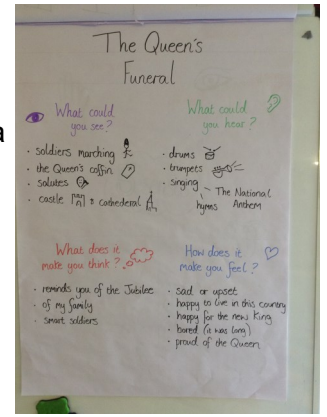 The Queen's
Funeral
What could
you see?
· soldiers marching
· the Queen's coffin
· salutes
· castle & cathederal
What could
you hear?
· drums
· trumpets
· singing
The National
Anthem
hymns
What does it
make you think?
· reminds you of the Jubilee
· of my family
· smart soldiers
How does it
make you feel?
· sad or upset
· happy to live in this country
· happy for the new King
· bored (it was long)
· proud of the Queen